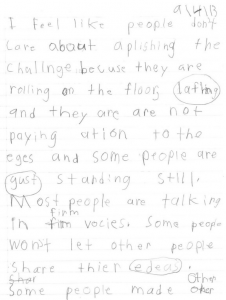 9/4/13
I feel like people don't
Care about aplishing the
Challnge. becuse they are
rolling on the floor, lafhing
and they are are not
paying ution to the
eges and some people are
gust standing still.
Most people are talking
firm
in vocies. Some people
won't let other people
Share thier edeas.
Other
Some people made other